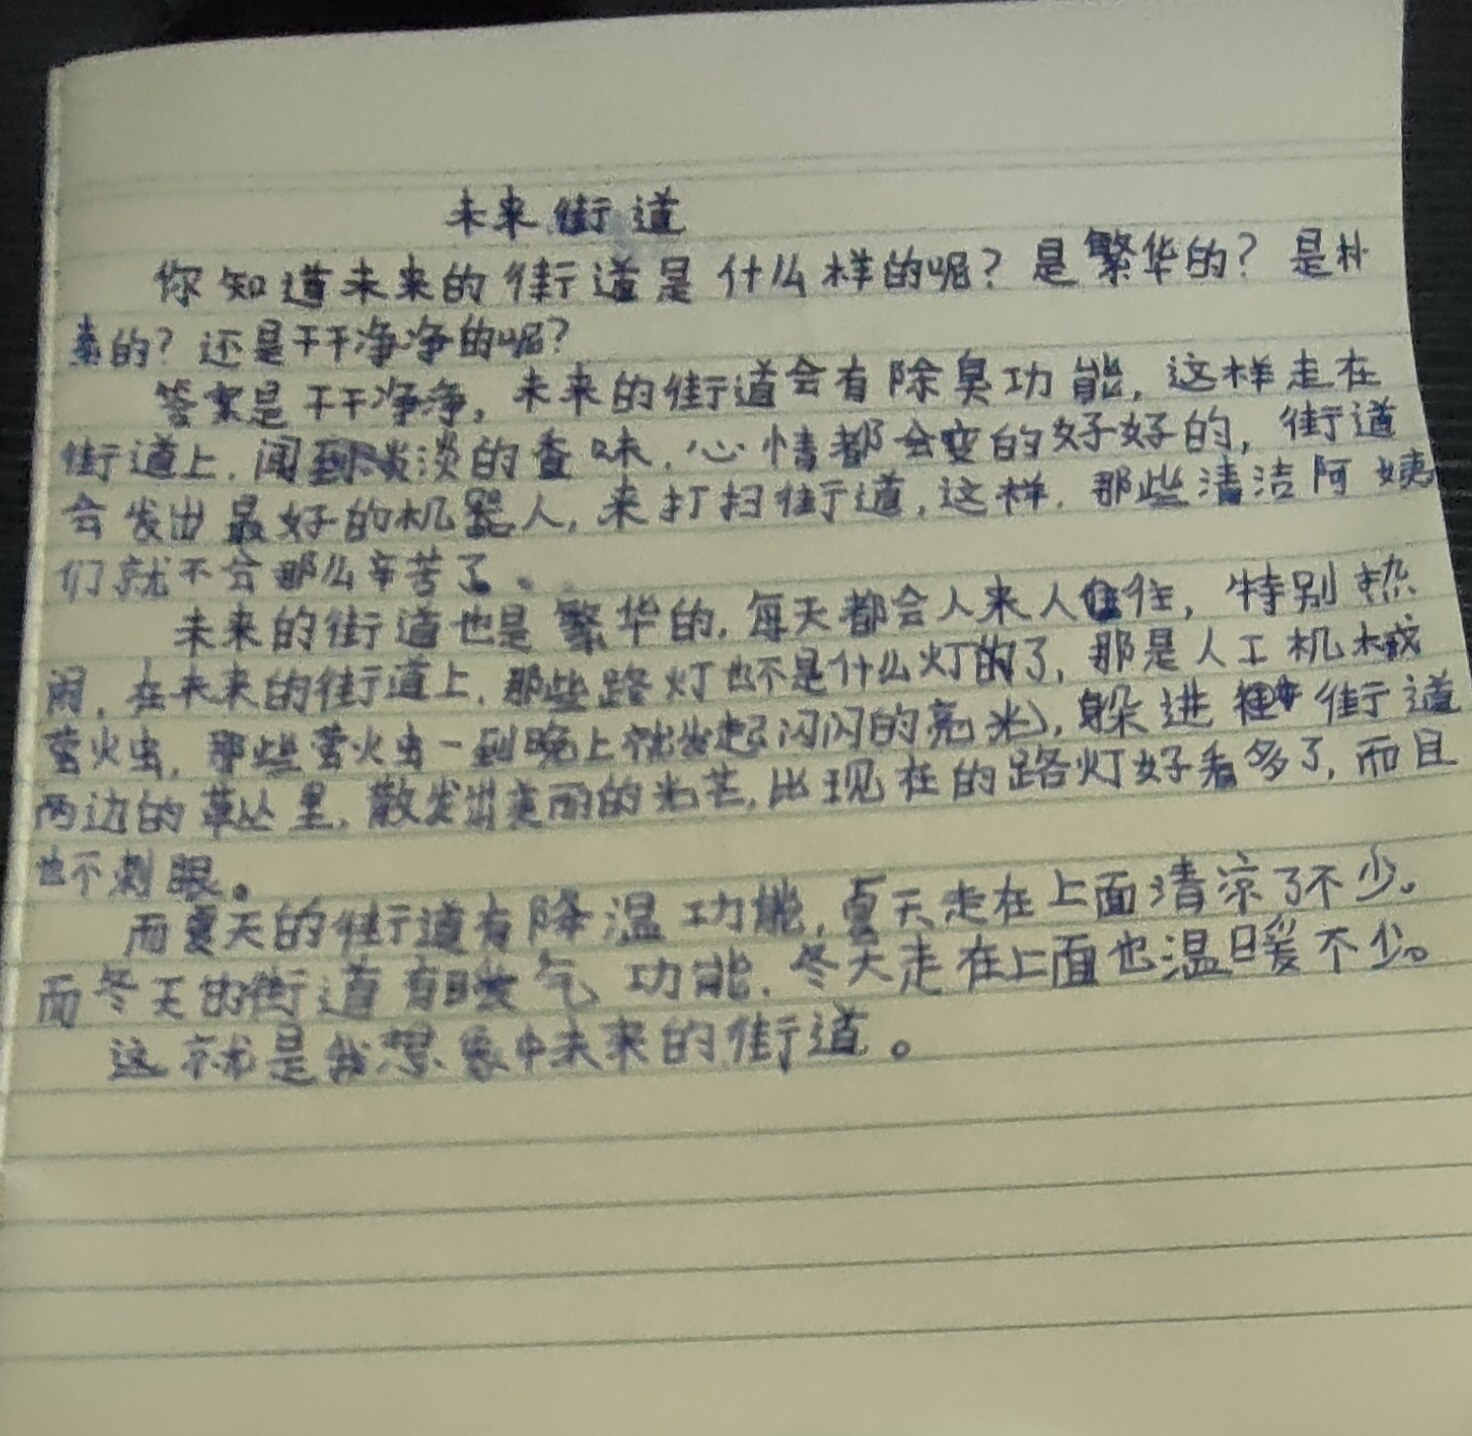 未来街道
你知道未来的街道是什么样的呢？是繁华的？是朴
素的？还是干干净净的呢？
答案是干干净净，未来的街道会有除臭功能，这样走在
街道上，闻到淡淡的香味，心情都会变的好好的，街道
会发出最好的机器人，来打扫街道，这样，那些清洁阿姨
们就不会那么辛苦了。
未来的街道也是繁华的，每天都会人来人往，特别热
闹，在未来的街道上，那些路灯也不是什么灯的了，那是人工机械
萤火虫，那些萤火虫一到晚上就发起闪闪的亮光，躲进街道
两边的草丛里，散发出美丽的光芒，比现在的路灯好看多了，而且
也不刺眼。
而夏天的街道有降温功能，夏天走在上面清凉了不少。
而冬天的街道有暖气功能，冬天走在上面也温暖不少。
这就是我想象中未来的街道。